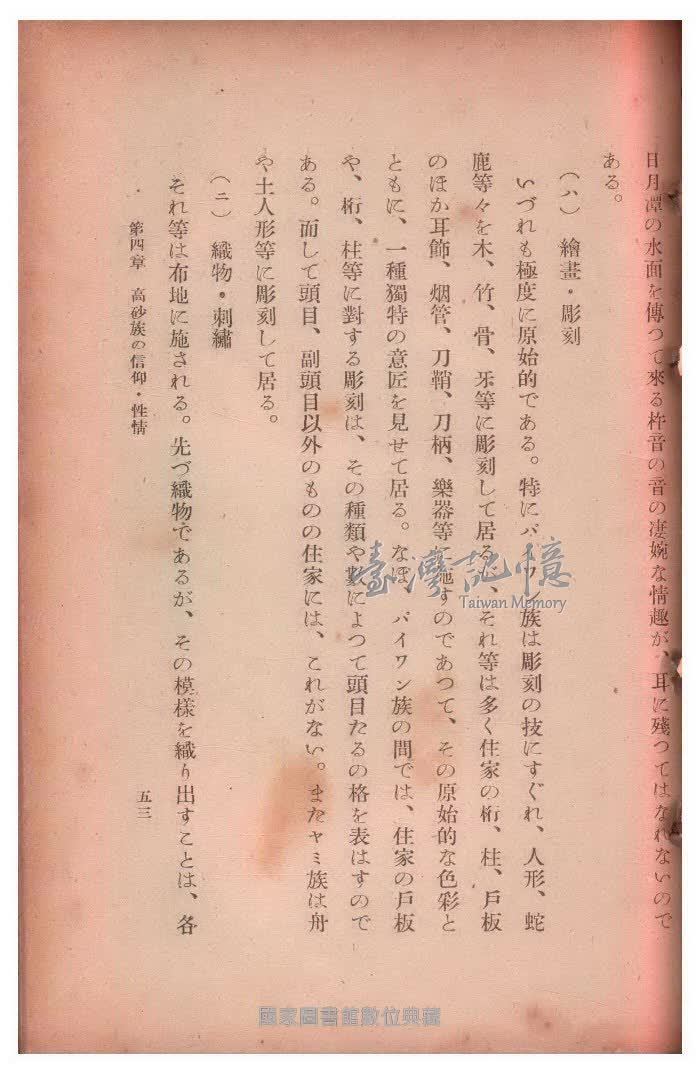 日月潭の水面を傳つて來る杵音の音の凄婉な情趣が、耳に殘つてはなれないので
ある。
(ハ) 繪畫・彫刻
いづれも極度に原始的である。特にパイワン族は彫刻の技にすぐれ、人形、蛇
鹿等々を木、竹、骨、牙等に彫刻して居るが、それ等は多く住家の桁、柱、戸板
のほか耳飾、烟管、刀鞘、刀柄、樂器等に施すのであつて、その原始的な色彩と
ともに、一種獨特の意匠を見せて居る。なほ、パイワン族の間では、住家の戸板
や、桁、柱等に對する彫刻は、その種類や數によつて頭目たるの格を表はすので
ある。而して頭目、副頭目以外のものの住家には、これがない。またヤミ族は舟
や土人形等に彫刻して居る。
(ニ) 織物・刺繡
それ等は布地に施される。先づ織物であるが、その模樣を織り出すことは、各
第四章 高砂族の信仰・性情
五三
臺灣記憶
Taiwan Memory
國家圖書館數位典藏